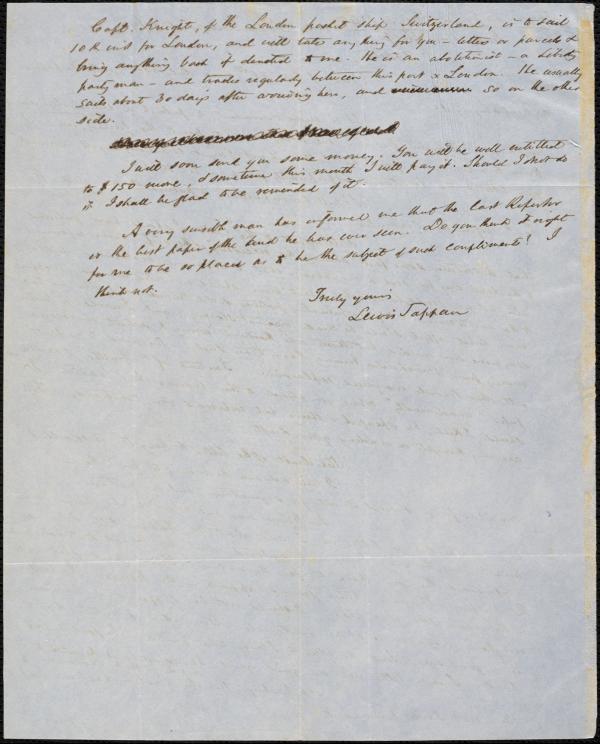 Capt. Knight, of the London packet ship Switzerland, is to sail
10th inst for London, and will take anything for you – letters or parcels &
bring anything back if denoted to me. He is an abolitionist – a Liberty
party man – and trades regularly between this port & London. He usually
sails about 30 days after arriving here, and so on the other
side.
I will soon send you some money. You will be well entitled
to $150 more, & sometime this month I will pay it. Should I not do
it I shall be glad to be reminded of it.
A very sensible man has informed me that the last Reporter
is the best paper of the kind he has ever seen. Do you think it right
for me to be so placed as to be the subject of such compliments? I
think not.
Truly yours
Lewis Tappan